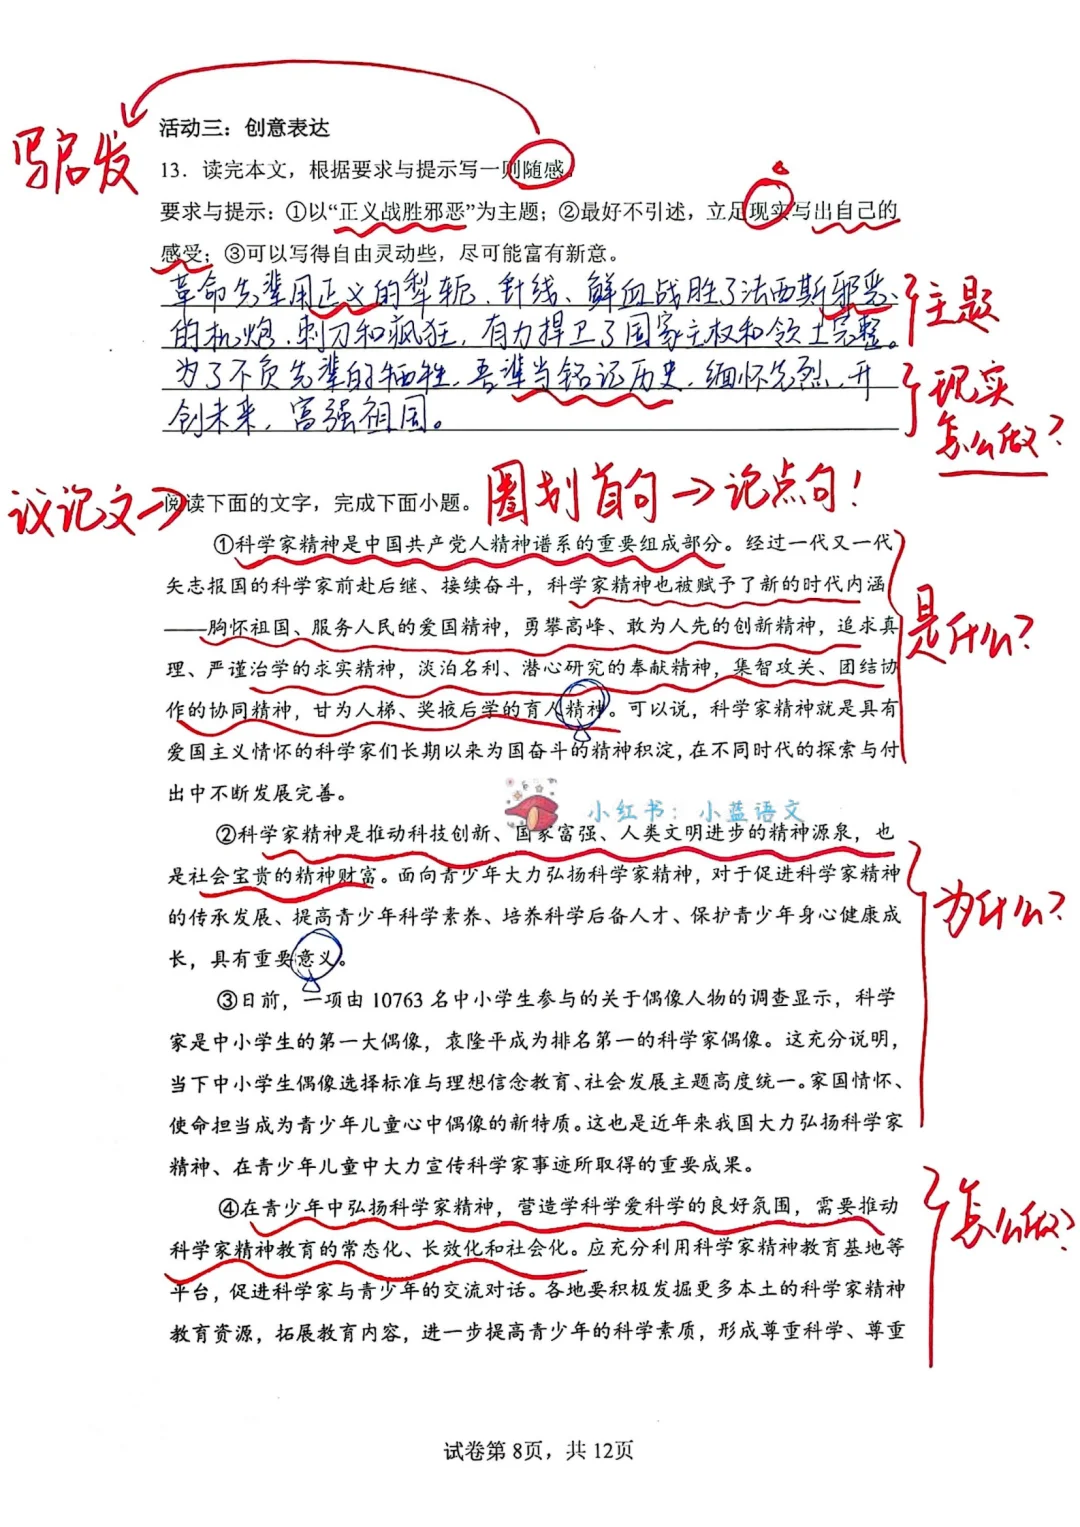 写启发
活动三：创意表达
13．读完本文，根据要求与提示写一则随感。
要求与提示：①以“正义战胜邪恶”为主题；②最好不引述，立足现实写出自己的
感受；③可以写得自由灵动些，尽可能富有新意。
革命先辈用正义的犁轭、针线、鲜血战胜了法西斯邪恶
的机炮、刺刀和疯狂，有力捍卫了国家主权和领土完整。
为了不负先辈的牺牲，吾辈当铭记历史，缅怀先烈，开
创未来，富强祖国。
主题
现实
怎么做？
议论文→
阅读下面的文字，完成下面小题。
圈划首句→论点句！
①科学家精神是中国共产党人精神谱系的重要组成部分。经过一代又一代
矢志报国的科学家前赴后继、接续奋斗，科学家精神也被赋予了新的时代内涵
——胸怀祖国、服务人民的爱国精神，勇攀高峰、敢为人先的创新精神，追求真
理、严谨治学的求实精神，淡泊名利、潜心研究的奉献精神，集智攻关、团结协
作的协同精神，甘为人梯、奖掖后学的育人精神。可以说，科学家精神就是具有
爱国主义情怀的科学家们长期以来为国奋斗的精神积淀，在不同时代的探索与付
出中不断发展完善。
是什么？
小红书：小蓝语文
②科学家精神是推动科技创新、国家富强、人类文明进步的精神源泉，也
是社会宝贵的精神财富。面向青少年大力弘扬科学家精神，对于促进科学家精神
的传承发展、提高青少年科学素养、培养科学后备人才、保护青少年身心健康成
长，具有重要意义。
为什么？
③日前，一项由 10763 名中小学生参与的关于偶像人物的调查显示，科学
家是中小学生的第一大偶像，袁隆平成为排名第一的科学家偶像。这充分说明，
当下中小学生偶像选择标准与理想信念教育、社会发展主题高度统一。家国情怀、
使命担当成为青少年儿童心中偶像的新特质。这也是近年来我国大力弘扬科学家
精神、在青少年儿童中大力宣传科学家事迹所取得的重要成果。
④在青少年中弘扬科学家精神，营造学科学爱科学的良好氛围，需要推动
科学家精神教育的常态化、长效化和社会化。应充分利用科学家精神教育基地等
平台，促进科学家与青少年的交流对话。各地要积极发掘更多本土的科学家精神
教育资源，拓展教育内容，进一步提高青少年的科学素质，形成尊重科学、尊重
怎么做？
试卷第 8页，共 12页